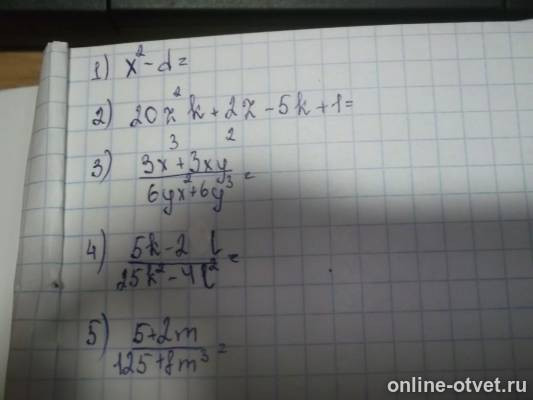 1) x² - d =
2) 20z²k + 2z - 5k + 1 =
3) 3x³ + 3xy² / 6yx² + 6y³ =
4) 5k - 2l / 25k² - 4l² =
5) 5 + 2m / 125 + 8m³ =
online-otvet.ru